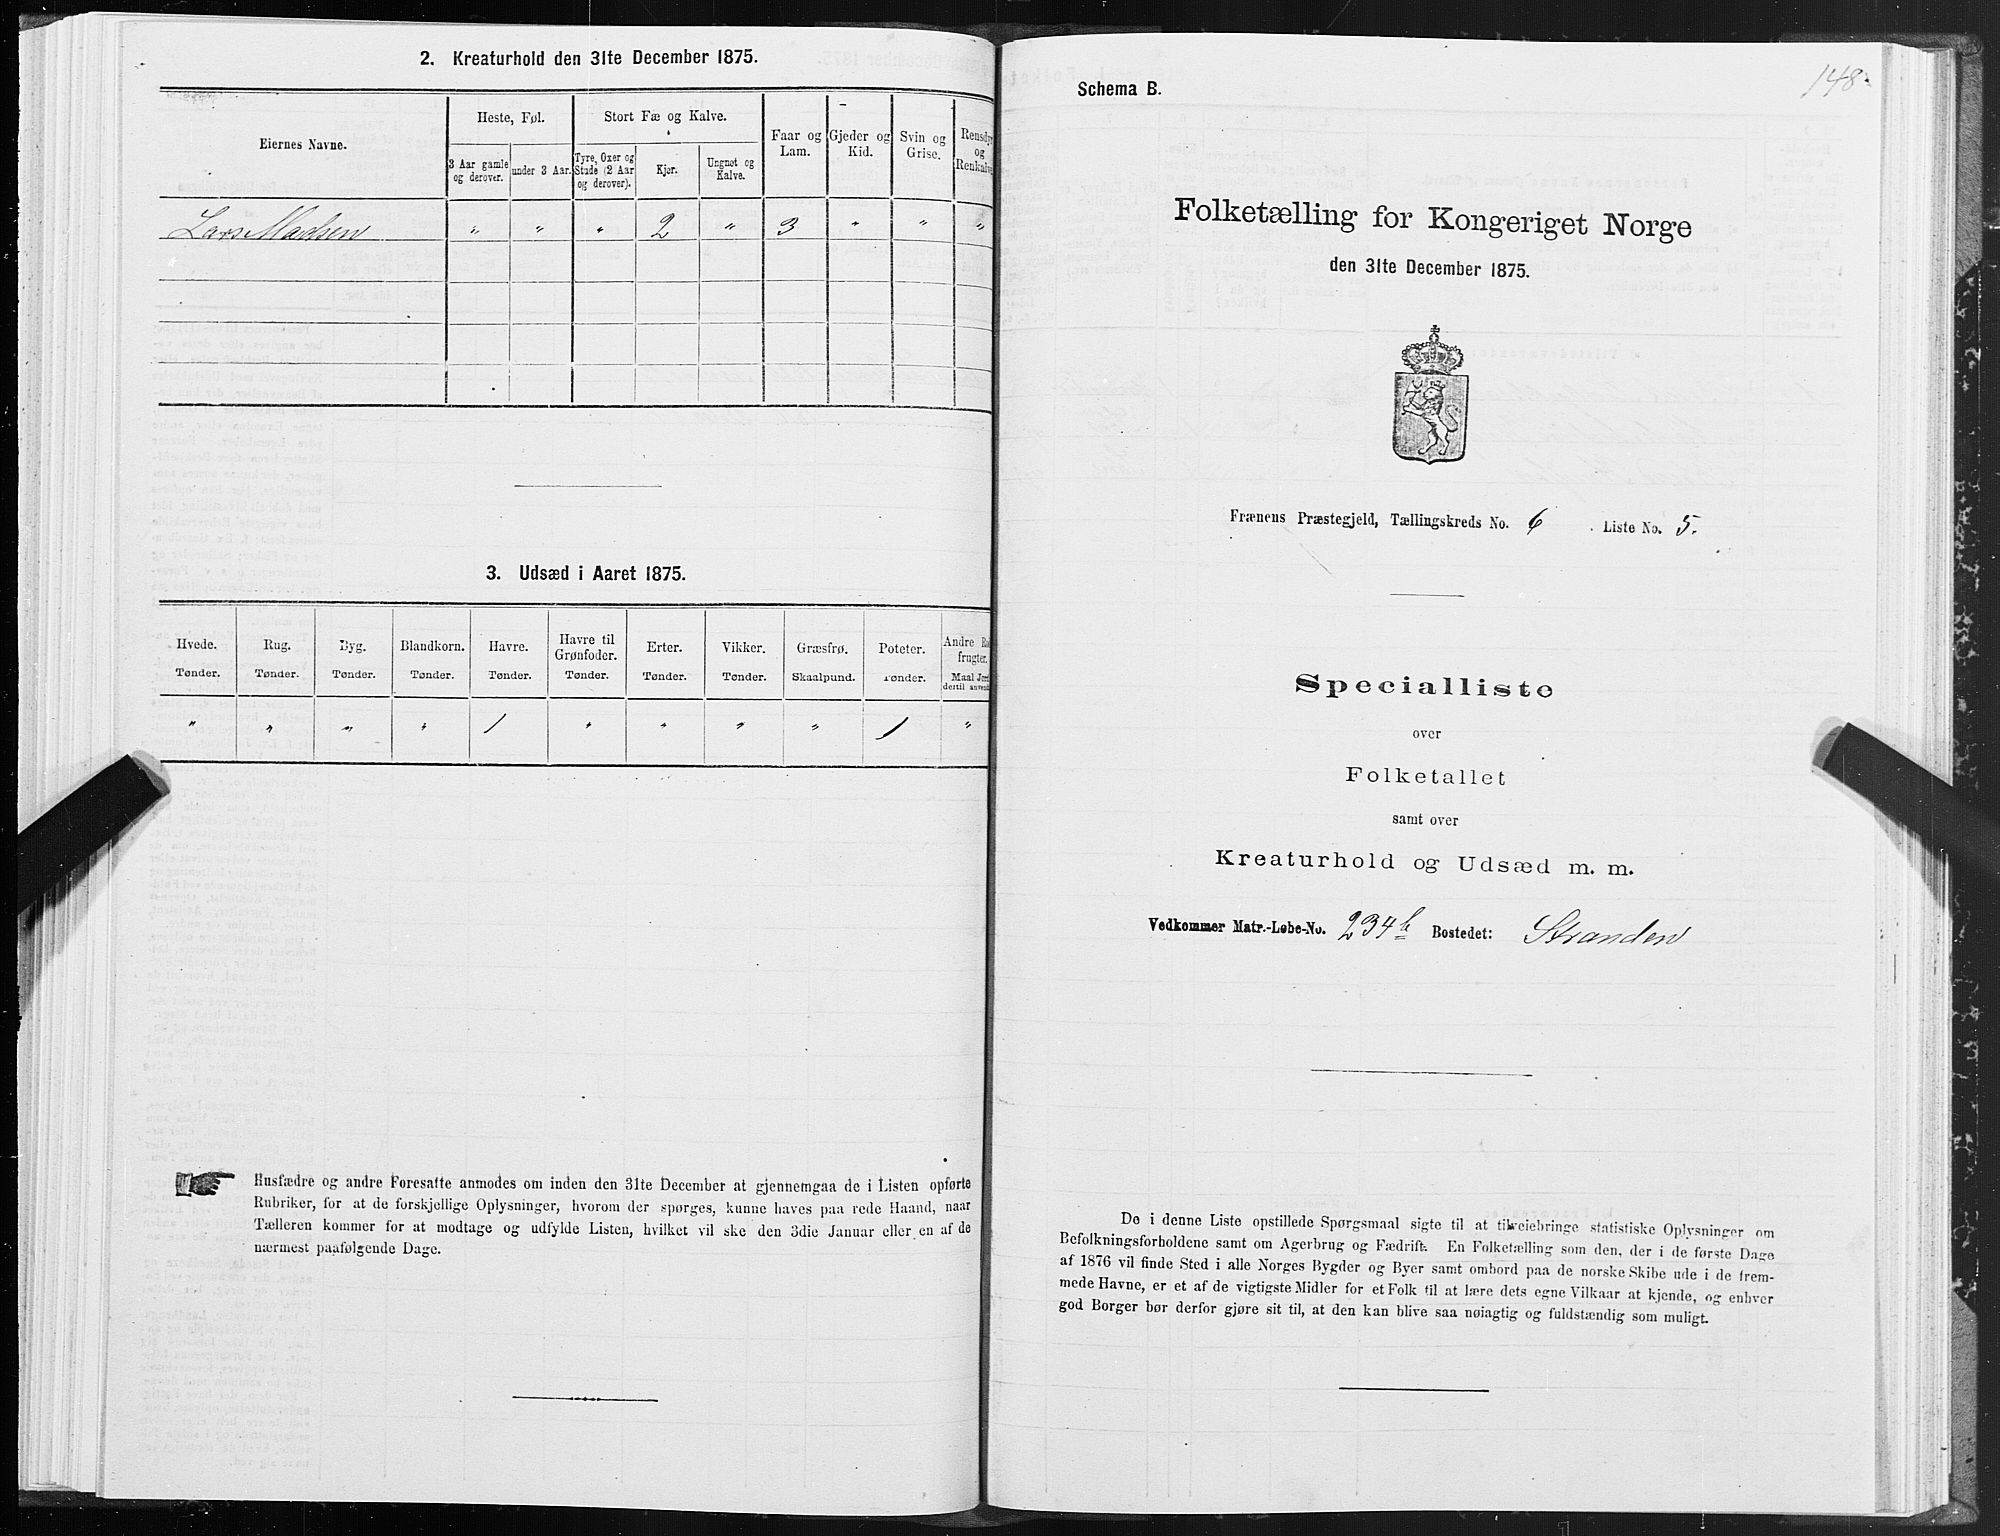 2. Kreaturhold den 31te December 1875.
Eiernes Navne.
Heste, Føl.
Stort Fæ og Kalve.
Faar og Lam.
Gjeder og Kid.
Svin og Grise.
Rensdyr og Renkalve
3 Aar gamle og derover.
under 3 Aar.
Tyre, Oxer og Stude (2 Aar og derover).
Kjør.
Ungnøt og Kalve.
Lars Madsen " " " 2 " 3 " " "
3. Udsæd i Aaret 1875.
Hvede. Rug. Byg. Blandkorn. Havre. Havre til Grønfoder. Erter. Vikker. Græsfrø. Poteter. Andre frugter.
Tønder. Tønder. Tønder. Tønder. Tønder. Tønder. Tønder. Tønder. Skaalpund. Tønder. Maal Jord dertil
" " " " 1 " " " " 1 "
Husfædre og andre Foresatte anmodes om inden den 31te December at gjennemgaa de i Listen opførte
Rubriker, for at de forskjellige Oplysninger, hvorom der spørges, kunne haves paa rede Haand, naar
Tælleren kommer for at modtage og udfylde Listen, hvilket vil ske den 3die Januar eller en af de
nærmest paafølgende Dage.
148
Schema B.
Folketælling for Kongeriget Norge
den 31te December 1875.
Frænens Præstegjeld, Tællingskreds No. 6 Liste No. 5.
Specialliste
over
Folketallet
samt over
Kreaturhold og Udsæd m. m.
Vedkommer Matr.-Løbe-No. 234b Bostedet: Stranden
De i denne Liste opstillede Spørgsmaal sigte til at tilveiebringe statistiske Oplysninger om
Befolkningsforholdene samt om Agerbrug og Fædrift. En Folketælling som den, der i de første Dage
af 1876 vil finde Sted i alle Norges Bygder og Byer samt ombord paa de norske Skibe ude i de frem-
mede Havne, er et af de vigtigste Midler for et Folk til at lære dets egne Vilkaar at kjende, og enhver
god Borger bør derfor gjøre sit til, at den kan blive saa nøiagtig og fuldstændig som muligt.